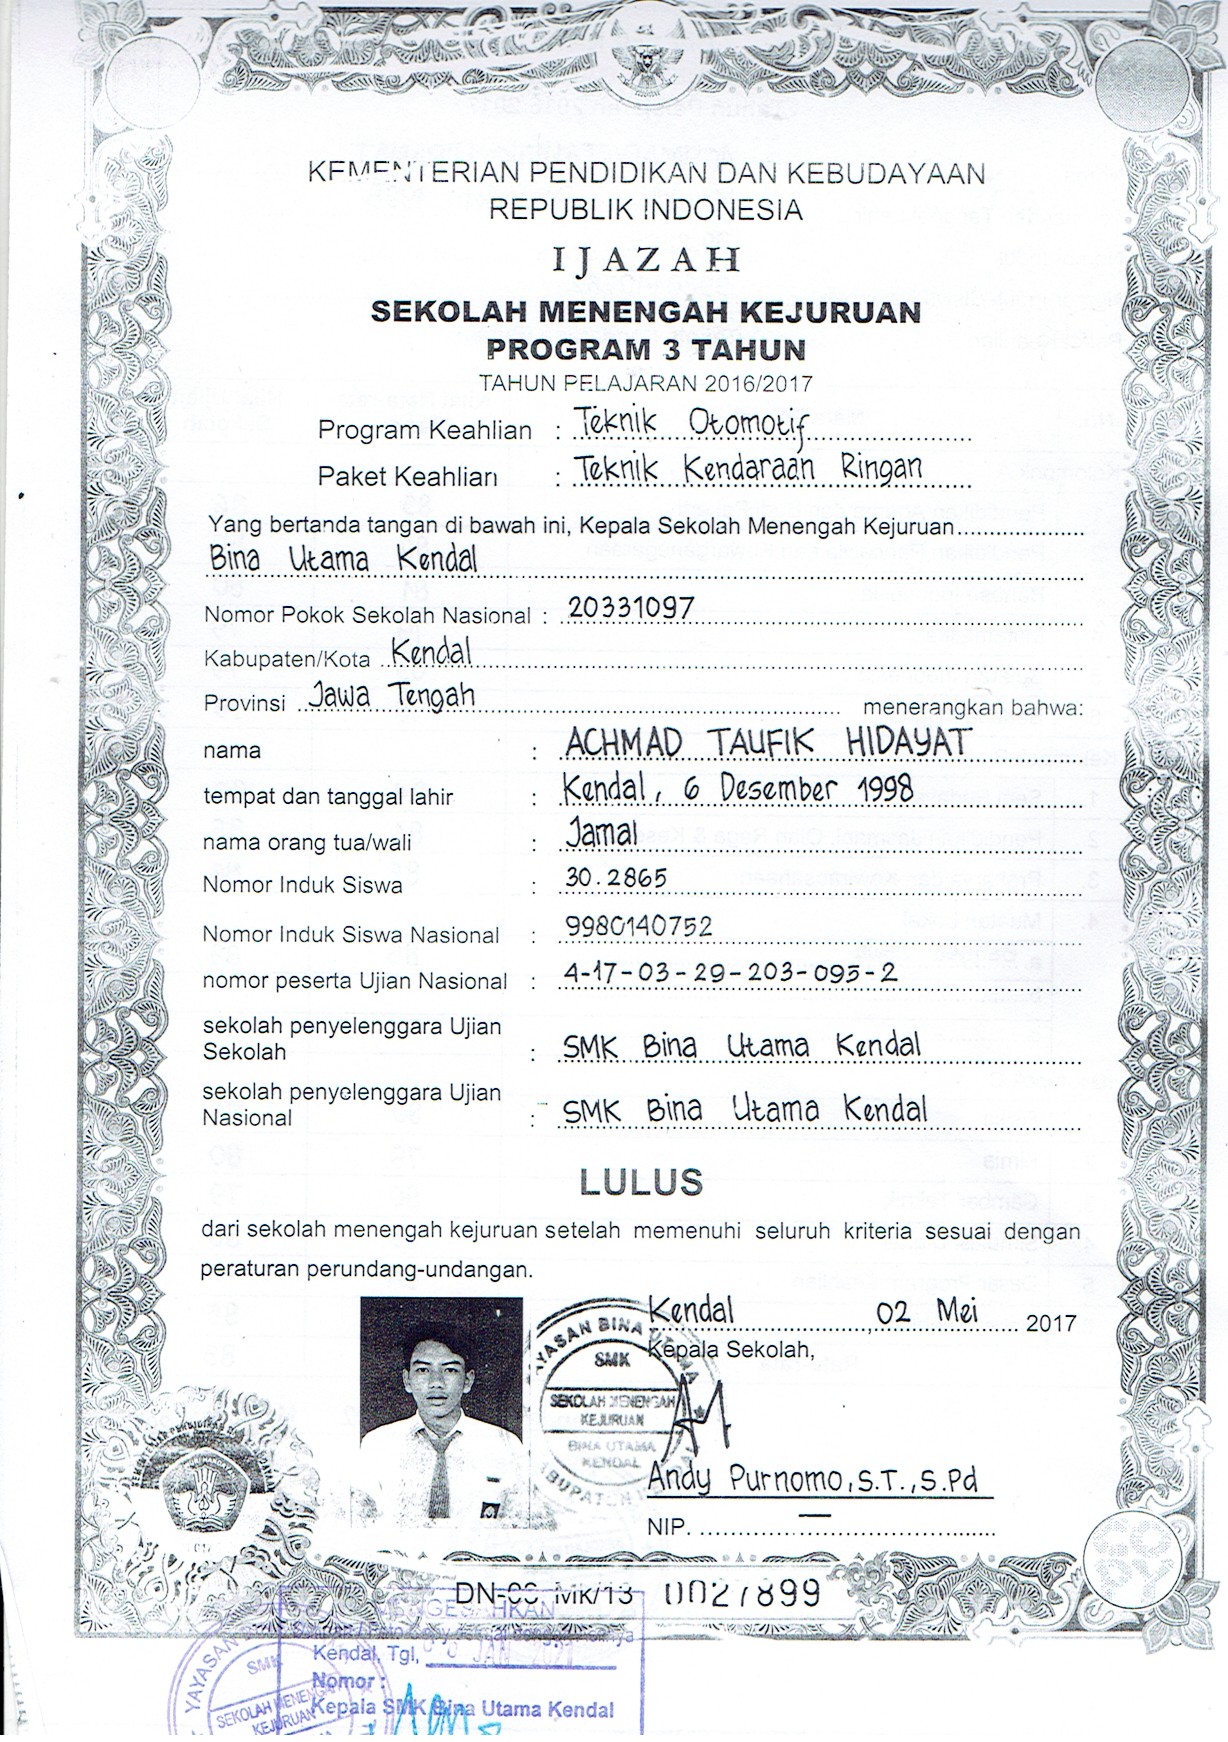 KEMENTERIAN PENDIDIKAN DAN KEBUDAYAAN
REPUBLIK INDONESIA
IJAZAH
SEKOLAH MENENGAH KEJURUAN
PROGRAM 3 TAHUN
TAHUN PELAJARAN 2016/2017
Program Keahlian : Teknik Otomotif
Paket Keahlian : Teknik Kendaraan Ringan
Yang bertanda tangan di bawah ini, Kepala Sekolah Menengah Kejuruan
Bina Utama Kendal
Nomor Pokok Sekolah Nasional : 20331097
Kabupaten/Kota Kendal
Provinsi Jawa Tengah menerangkan bahwa:
nama : ACHMAD TAUFIK HIDAYAT
tempat dan tanggal lahir : Kendal, 6 Desember 1998
nama orang tua/wali : Jamal
Nomor Induk Siswa : 30.2865
Nomor Induk Siswa Nasional : 9980140752
nomor peserta Ujian Nasional : 4-17-03-29-203-095-2
sekolah penyelenggara Ujian
Sekolah : SMK Bina Utama Kendal
sekolah penyelenggara Ujian
Nasional : SMK Bina Utama Kendal
LULUS
dari sekolah menengah kejuruan setelah memenuhi seluruh kriteria sesuai dengan
peraturan perundang-undangan.
Kendal, 02 Mei 2017
Kepala Sekolah,
YAYASAN BINA UTAMA
SMK
SEKOLAH MENENGAH
KEJURUAN
BINA UTAMA
KENDAL
Andy Purnomo, S.T., S.Pd
NIP. —
MK/13 0027899
Kendal, Tgl,
Nomor :
Kepala SMK Bina Utama Kendal
YAYASAN
SMK
SEKOLAH MENENGAH
KEJURUAN